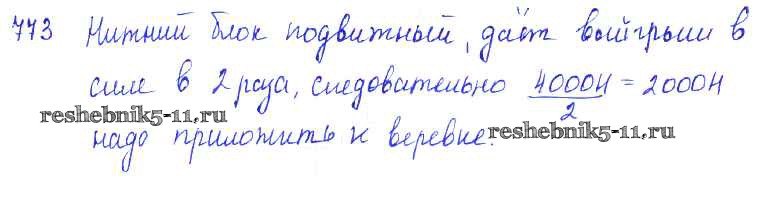 773 Нижний блок подвижный, даёт выигрыш в
силе в 2 раза, следовательно 4000Н/2 = 2000Н
reshebnik5-11.ru reshebnik5-11.ru
надо приложить к веревке.